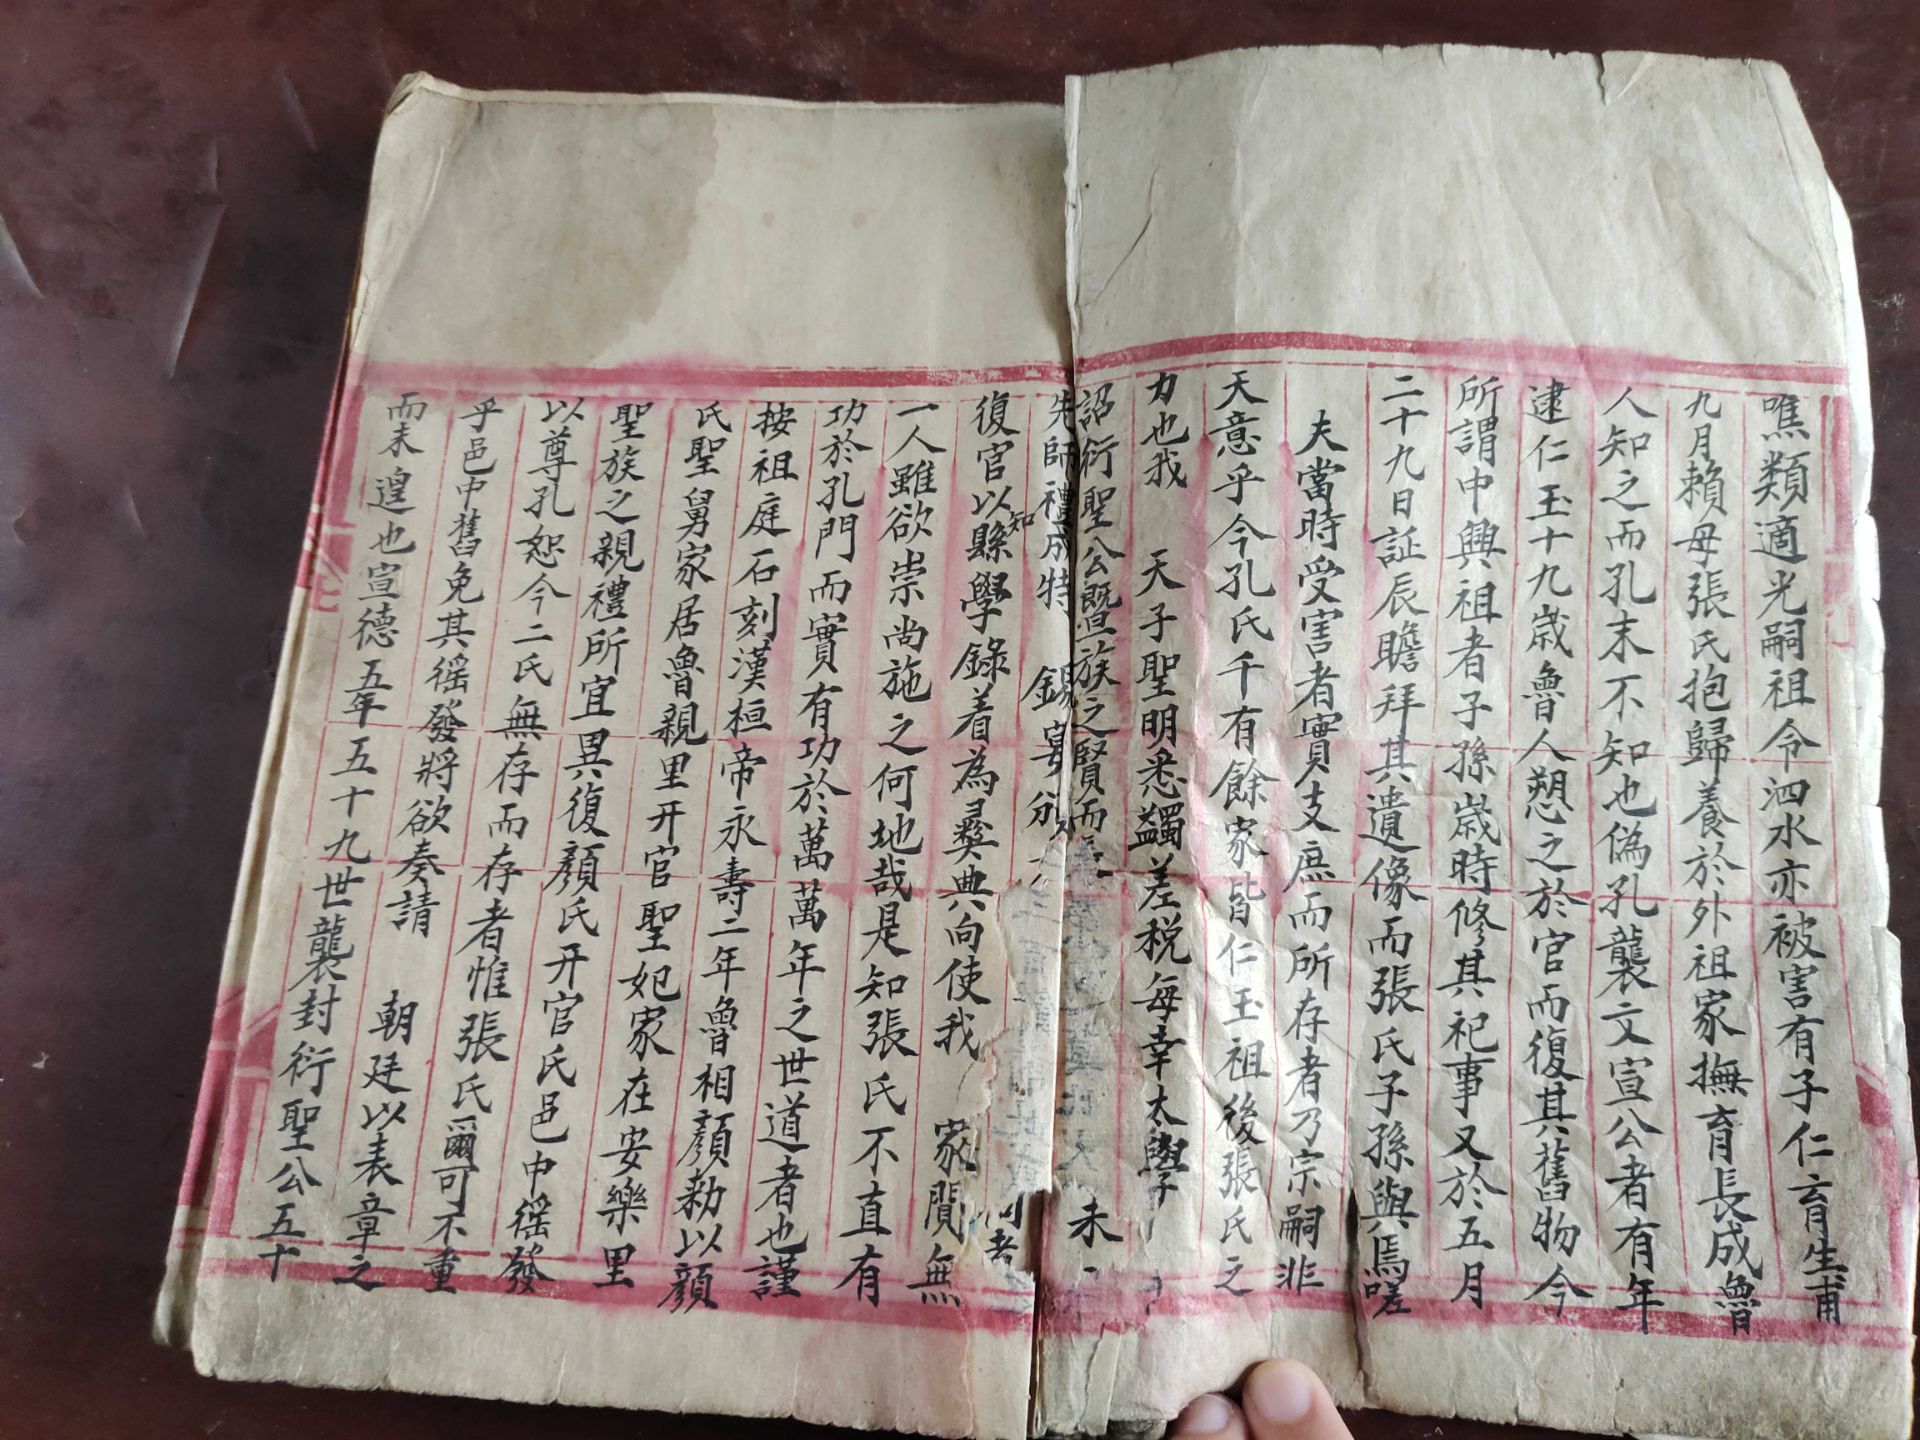 噍類適光嗣祖令泗水亦被害有子仁育生甫
九月賴母張氏抱歸養於外祖家撫育長成魯
人知之而孔末不知也偽孔襲文宣公者有年
逮仁玉十九歲魯人愬之於官而復其舊物今
所謂中興祖者子孫歲時修其祀事又於五月
二十九日証辰瞻拜其遺像而張氏子孫與焉嗟
夫當時受害者實支庶而所存者乃宗嗣非
天意乎今孔氏千有餘家皆仁玉祖後張氏之
力也我 天子聖明悉蠲差税每幸太學
詔衍聖公暨族之賢而 未
先師禮成特 錫宴
復官以知縣學錄着為彞典向使我 家間無
一人雖欲崇尚施之何地哉是知張氏不直有
功於孔門而實有功於萬萬年之世道者也謹
按祖庭石刻漢桓帝永壽二年魯相顏勑以顏
氏聖舅家居魯親里开官聖妃家在安樂里
聖族之親禮所宜異復顏氏开官氏邑中徭發
以尊孔恕今二氏無存而存者惟張氏爾可不重
乎邑中舊免其徭發將欲奏請 朝廷以表章之
而未遑也宣德五年五十九世襲封衍聖公五十